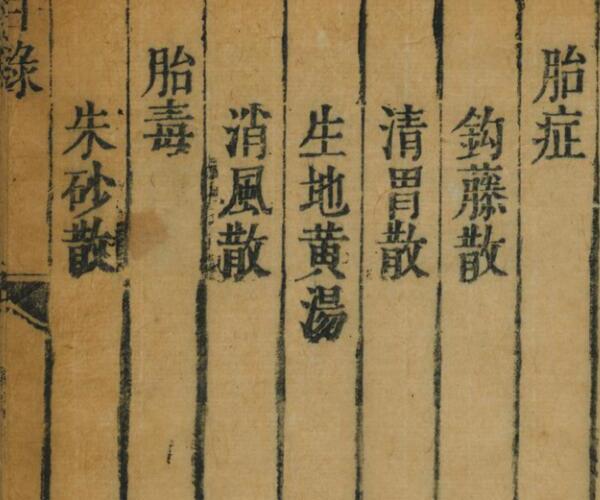 胎症
鈎藤散
清胃散
生地黄湯
消風散
胎毒
朱砂散
目錄